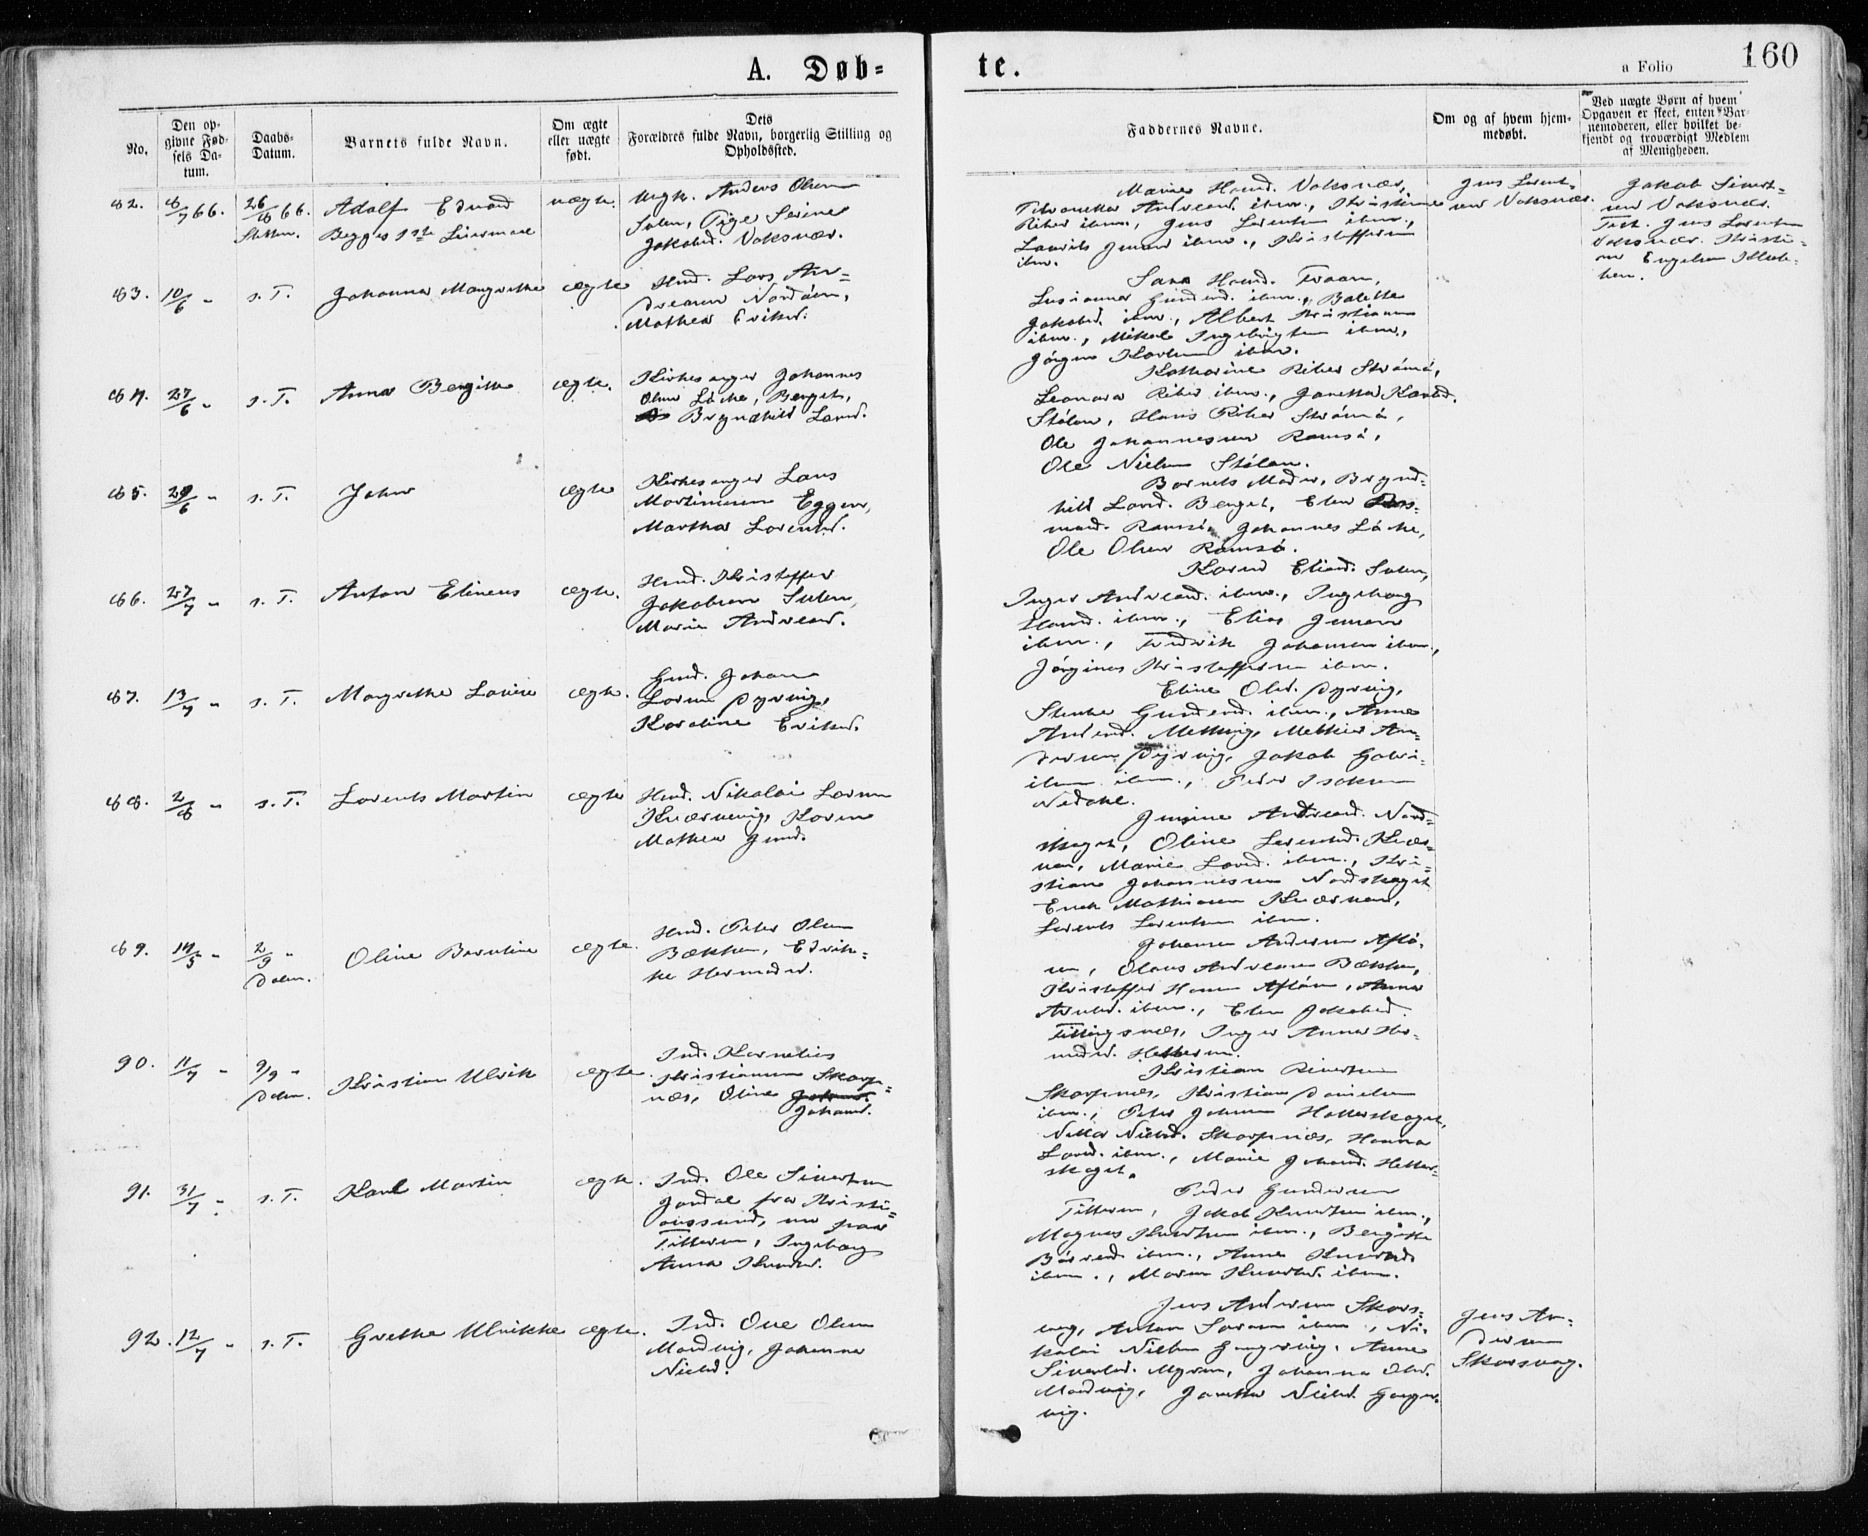 A. Døb-
te.
160
a Folio
No.
Den op-
givne Fød-
sels Da-
tum.
Daabs-
Datum.
Barnets fulde Navn.
Om ægte
eller uægte
født.
Dets
Forældres fulde Navn, borgerlig Stilling og
Opholdssted.
Faddernes Navne.
Om og af hvem hjem-
medøbt.
Ved uægte Børn af hvem
Opgaven er skeet, enten Bar-
nemoderen, eller hvilket be-
kjendt og troværdigt Medlem
af Menigheden.
82. 8/7 66. 26/8 66. Adolf Edvard uægte. Ungk. Anders Olsen
Begges 1ste Leiermaal Sulen, Pige
Jakobd. Voksnær.
Marie Hansd. Voksnær,
Andreasd. ibm.,
ibm., Jens Lorentsen ibm.,
Laurits Jensen ibm., Kristoffersen
ibm.
Jens Lorent-
sen Voksnær.
Jakob Sivert-
sen Voksnær.
Test. Jens Lorentsen
Voksnær.
83. 10/6 " s. T. Johanna Margrethe ægte Hmd. Lars An-
dreasen Nordøen,
Mathea Eriksd.
Sara Hansd.
ibm.,
Jakobsd. ibm., Albert Kristiansen
ibm., Mikal Ingebrigtsen ibm.,
Jørgen Karlsen ibm.
84. 27/6 " s. T. Anna Bergitte ægte. Kirkesanger Johannes
Olsen Låche, Berget,
Bryndhild Larsd.
Katharine Riber Strømø,
Leonora Riber ibm.,
Stølan, Hans Riber Strømø,
Ole Johannesen Ramsø,
Ole Nielsen Stølan.
85. 29/6 " s. T. Johan ægte Kirkesanger Lars
Martinusen Eggen,
Martha Lorentsd.
Barnets Moder, Brynd-
hild Larsd. Berget, Elen
Ramsø, Johannes Låche,
Ole Olsen Ramsø.
86. 27/7 " s. T. Anton Elineus ægte. Hmd. Kristoffer
Jakobsen Sulen,
Marie Andreasd.
Karen Eliasd. Sulen,
Inger Andreasd. ibm., Ingeborg
Hansd. ibm., Elias Jensen
ibm., Fredrik Johansen ibm.,
Jørginus Kristoffersen ibm.
87. 13/7 " s. T. Margrethe Lovise ægte. Hmd. Johan
Larsen Dyrvig,
Karoline Eriksd.
Eline Olsd. Dyrvig,
ibm., Anne
An-
dersen Dyrvig, Jakob Gabri-
elsen ibm., Peder Isaksen
Nedahl.
88. 2/8 " s. T. Lorents Martin ægte Hmd. Nikolai Larsen
Kværnvig, Karen
Mathea Jensd.
Jensine Andreasd. Nord-
skaget, Oline Lorentsd. Kvær-
nen, Marie Larsd. ibm., Kri-
stian Johannesen Nordskaget
Erich Mathiasen Kværnen,
Lorents Lorentsen ibm.
89. 14/5 " 2/9 " Oline Berntine ægte. Hmd. Peter Olsen
Dolm. Bækken, Edvik-
ke Hermodsd.
Johanna Andersen Aflø-
en, Olaus Andreasen Bækken,
Kristoffer Hansen Afløen, Anna
Arntsd. ibm., Elen Jakobsd.
Fillingsnes, Inger Anna Her-
modsd.
90. 11/7 " 9/9 " Kristian Ulrik ægte. Ind. Kornelius
Dolm. Kristiansen Skarp-
næs, Oline
Johansd.
Kristian
Skarpnæs, Kristian Danielsen
ibm., Peter Johnsen Hatterskaget,
Nielsd. Skarpnæs, Hanna
Larsd. ibm., Marie Johansd. Hatter-
skaget.
91. 31/7 " s. T. Karl Martin ægte. Ind. Ole Sivertsen
Jordal fra Kristi-
anssund, nu paa
Titteren, Ingeborg
Anna Knudsd.
Peder Gundersen
Titteren, Jakob Knudtsen ibm.,
Magnus Knudtsen ibm., Bergitte
ibm., Anne Knudtsd.
ibm., Maren Knudtsd. ibm.
92. 12/7 " s. T. Grethe Ulrikke ægte. Ind. Ove Olsen
Mandvig, Johanna
Nielsd.
Jens Andersen Skars-
vag, Anton Sørensen ibm., Ni-
kolai Nielsen Gangsvig, Anne
Sivertsd. Myren, Johanna Olsd.
Mandvig, Nielsd. Gangs-
vig.
Jens An-
dersen
Skarsvag.